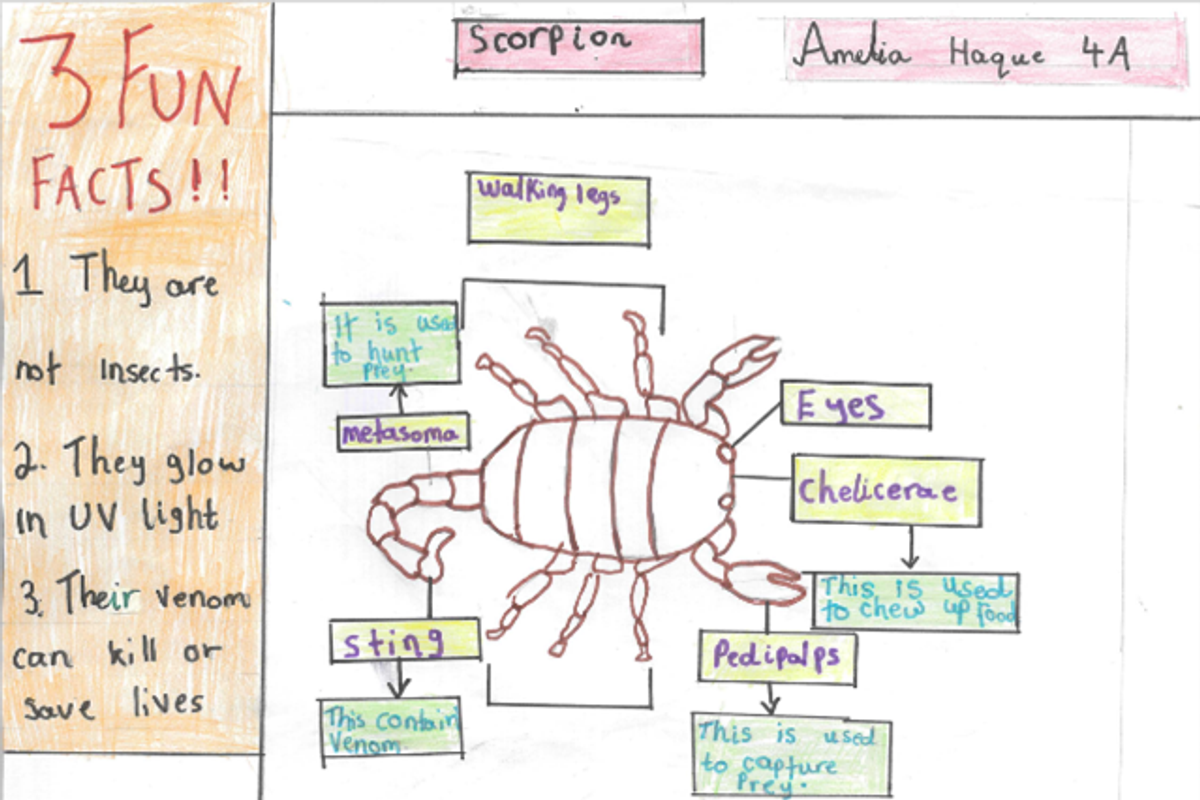 3 FUN
FACTS!!
1 They are
not insects.
2. They glow
in UV light
3. Their venom
can kill or
save lives
Scorpion
Amelia Haque 4A
Walking legs
It is used
to hunt
prey.
metasoma
Eyes
Chelicerae
This is used
to chew up food
sting
This contain
Venom.
Pedipalps
This is used
to capture
Prey.